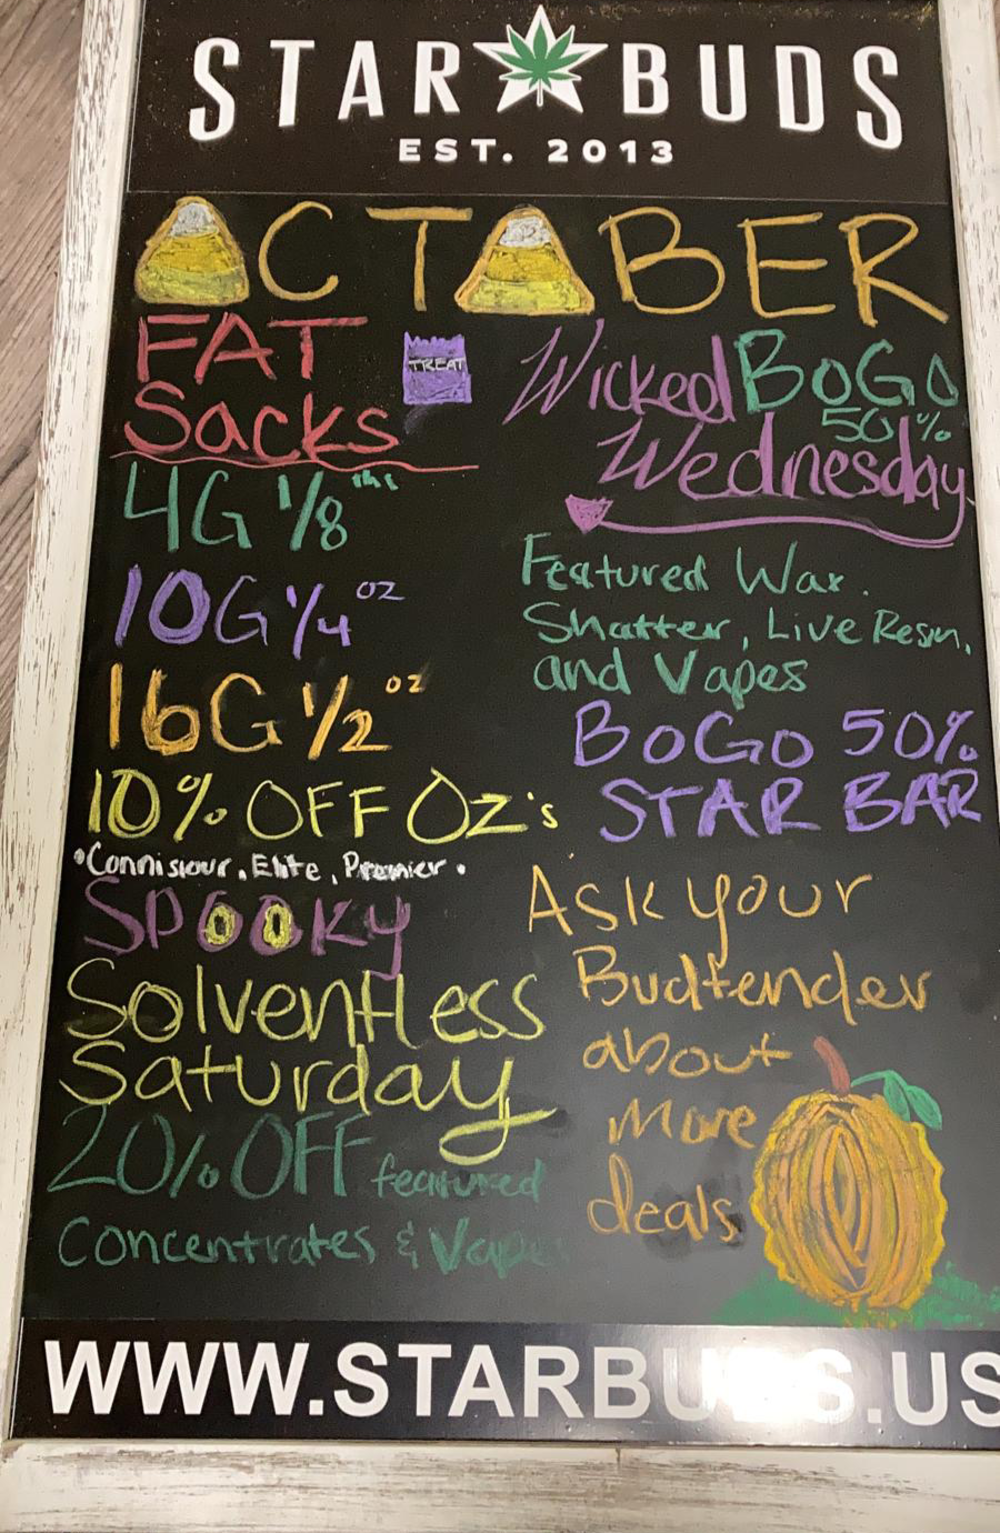 STAR BUDS
EST. 2013
OCTOBER
FAT
Sacks
TREAT
4G 1/8ths
10G 1/4 oz
16G 1/2 oz
10% OFF OZ's
•Connisiour, Elite, Premier.
SPOOKY
Solventless
Saturday
20% OFF featured
Concentrates & Vapes
Wicked BOGO
50%
Wednesday
Featured Wax.
Shatter, Live Resin,
and Vapes
BOGO 50%
STAR BAR
Ask your
Budtender
about
More
deals
WWW.STARBUDS.US